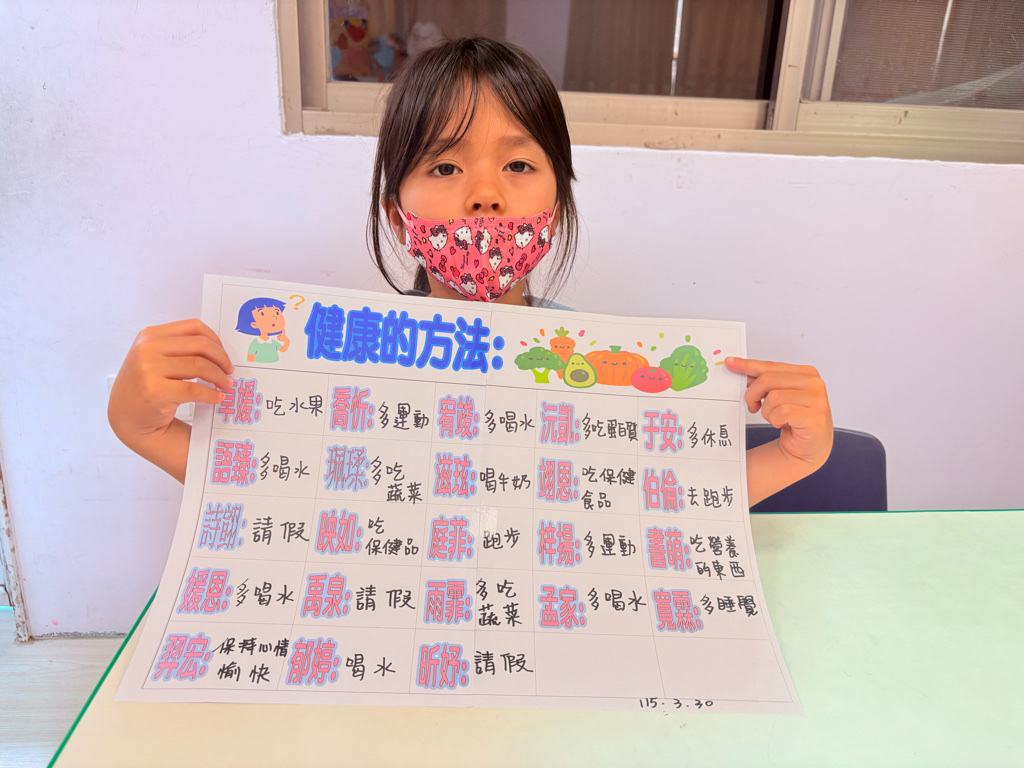 ?
健康的方法:
卓媛: 吃水果 喬忻: 多運動 宥竣: 多喝水 沅凱: 多吃蛋白質 于安: 多休息
語臻: 多喝水 珮瑈: 多吃蔬菜 滋玹: 喝牛奶 翊恩: 吃保健食品 伯倫: 去跑步
詩翊: 請假 映如: 吃保健品 庭菲: 跑步 梓揚: 多運動 書萌: 吃營養的東西
媛恩: 多喝水 禹泉: 請假 雨霏: 多吃蔬菜 孟家: 多喝水 寬霖: 多睡覺
羿宏: 保持心情愉快 郁婷: 喝水 昕妤: 請假
115.3.30